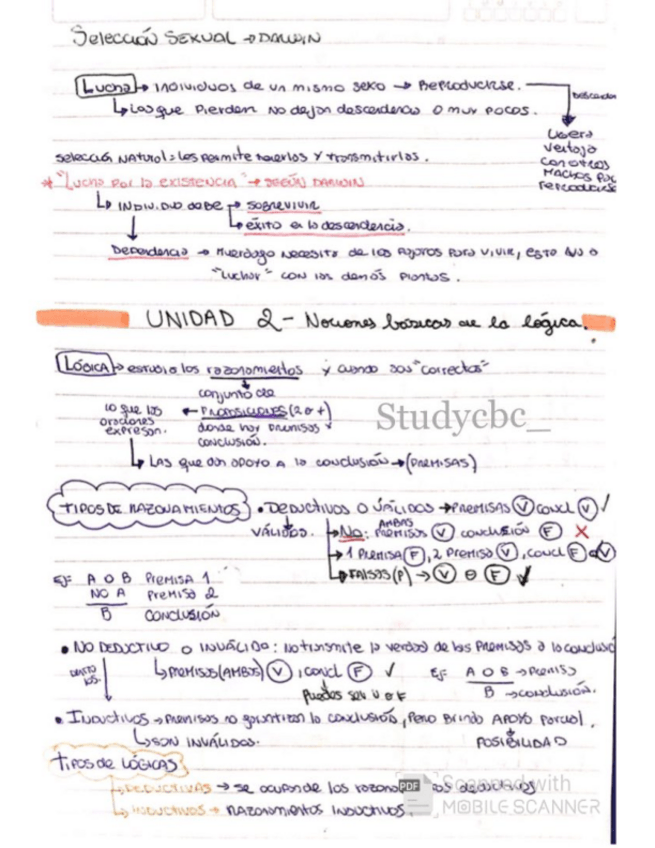 Selección SEXUAL → DARWIN
Lucha → INDIVIDUOS de un mismo sexo → Reproducirse.
↳ Los que pierden no dejan descendencia o muy pocos.
Ligera
ventaja
con otros
MACHOS por
reproducirse
selección Natural: les permite tenerlos y transmitirlas.
* "Lucha por la existencia" → SEGÚN DARWIN
↳ INDIVIDUO debe → SOBREVIVIR
↳ éxito en la descendencia.
Dependencia → Muérdago necesita de los pájaros para vivir, esto
"Luchar" con las demás plantas.
UNIDAD 2 - Nociones básicas de la lógica.
LÓGICA → estudia los razonamientos y cuando son "correctos"
conjunto de
lo que las oraciones expresan. ← PROPOSICIONES (2 o +)
donde hay premisas y
conclusión.
Studycbc_
↳ LAS que dan apoyo a la conclusión → (PREMISAS)
TIPOS DE RAZONAMIENTOS
• DEDUCTIVOS O VÁLIDOS → PREMISAS (V) concl (V) ✓
VÁLIDOS. → NO: AMBAS premisas (V) conclusión (F) X
→ 1 Premisa (F), 2 Premisa (V), concl (F) o (V)
↳ FALSAS (P) → (V) o (F) ✓
EJ: A O B PREMISA 1
NO A Premisa 2
B CONCLUSIÓN
• NO DEDUCTIVO O INVÁLIDO: No transmite la verdad de las PREMISAS a la conclusió
↳ premisas (AMBAS) (V), concl (F) ✓
Puede ser V o F
EJ: A O B → Premisa
B → conclusión.
• Inductivos → premisas no garantizan la conclusión, pero Brinda APOYO Parcial.
↳ SON INVÁLIDOS.
POSIBILIDAD
TIPOS de LÓGICAS
↳ DEDUCTIVAS → se ocupan de los razonamientos deductivos
↳ INDUCTIVOS → RAZONAMIENTOS INDUCTIVOS.
PDF Scanned with
MOBILE SCANNER